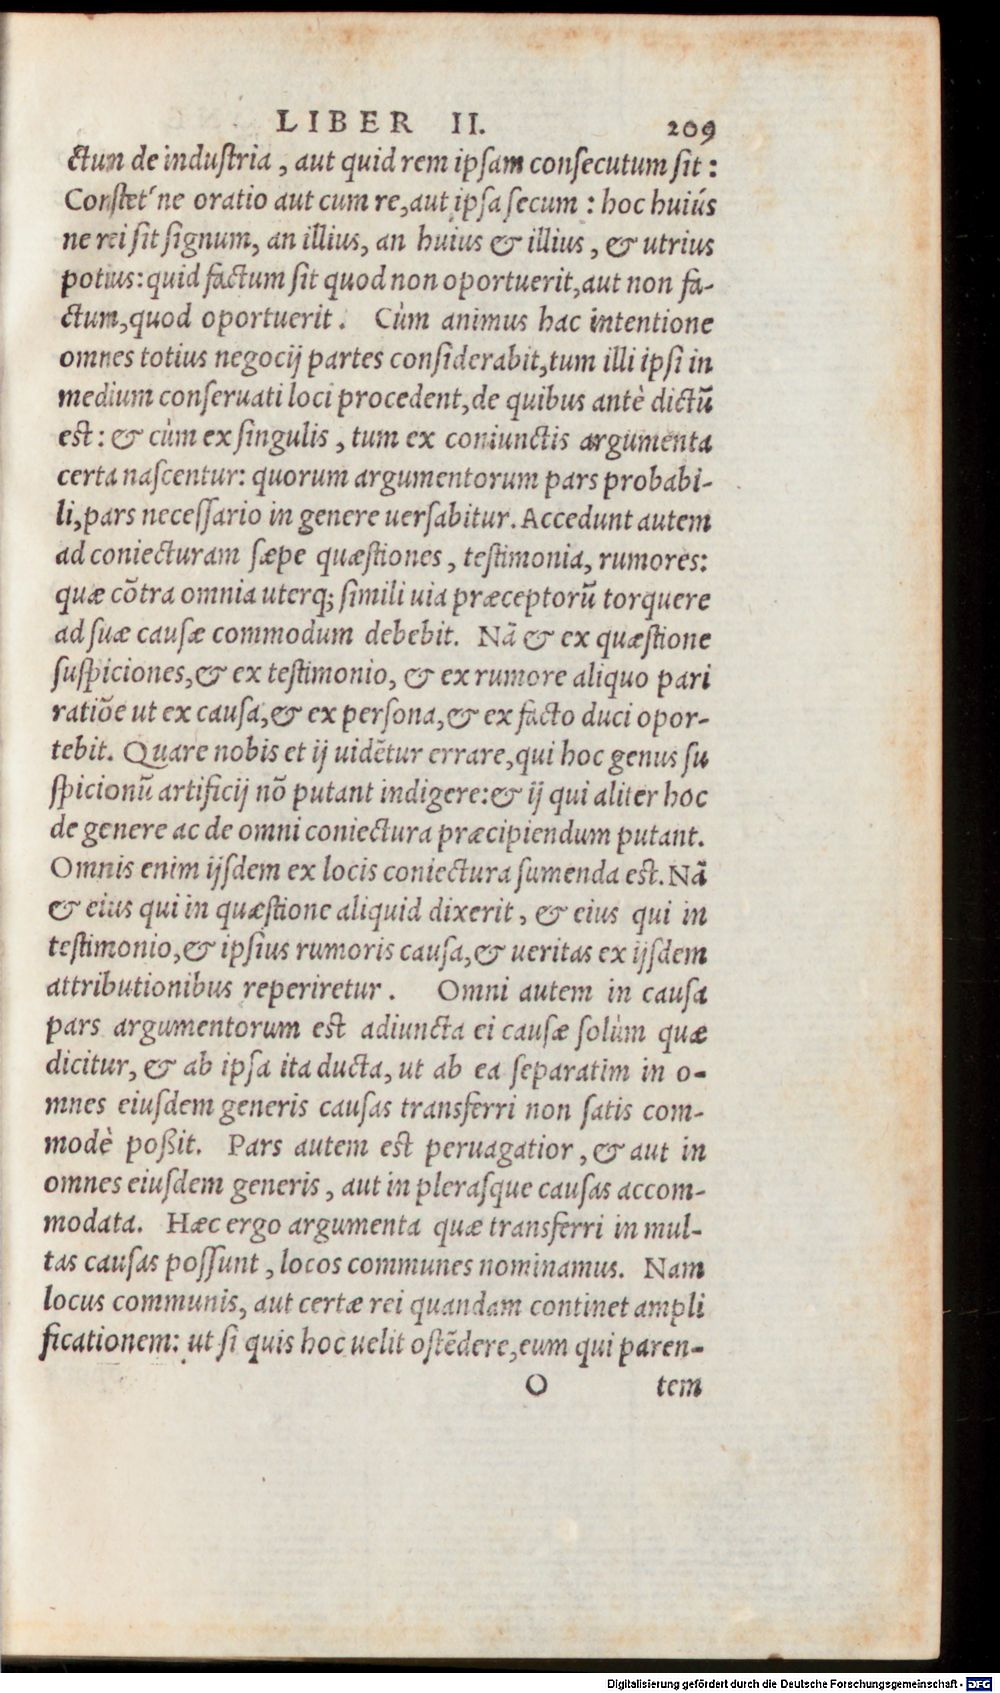 LIBER II. 209
ctum de industria, aut quid rem ipsam consecutum sit:
Constet'ne oratio aut cum re, aut ipsa secum: hoc huiús
ne rei sit signum, an illius, an huius & illius, & utrius
potius: quid factum sit quod non oportuerit, aut non fa-
ctum, quod oportuerit. Cùm animus hac intentione
omnes totius negocij partes considerabit, tum illi ipsi in
medium conseruati loci procedent, de quibus antè dictũ
est: & cùm ex singulis, tum ex coniunctis argumenta
certa nascentur: quorum argumentorum pars probabi-
li, pars necessario in genere uersabitur. Accedunt autem
ad coniecturam sæpe quæstiones, testimonia, rumores:
quæ cõtra omnia uterq; simili uia præceptorũ torquere
ad suæ causæ commodum debebit. Nã & ex quæstione
suspiciones, & ex testimonio, & ex rumore aliquo pari
ratiõe ut ex causa, & ex persona, & ex facto duci opor-
tebit. Quare nobis et ij uidẽtur errare, qui hoc genus su
spicionũ artificij nõ putant indigere: & ij qui aliter hoc
de genere ac de omni coniectura præcipiendum putant.
Omnis enim ijsdem ex locis coniectura sumenda est. Nã
& eius qui in quæstione aliquid dixerit, & eius qui in
testimonio, & ipsius rumoris causa, & ueritas ex ijsdem
attributionibus reperiretur. Omni autem in causa
pars argumentorum est adiuncta ei causæ solùm quæ
dicitur, & ab ipsa ita ducta, ut ab ea separatim in o-
mnes eiusdem generis causas transferri non satis com-
modè poßit. Pars autem est peruagatior, & aut in
omnes eiusdem generis, aut in plerasque causas accom-
modata. Hæc ergo argumenta quæ transferri in mul-
tas causas possunt, locos communes nominamus. Nam
locus communis, aut certæ rei quandam continet ampli
ficationem: ut si quis hoc uelit ostẽdere, eum qui paren-
O tem
Digitalisierung gefördert durch die Deutsche Forschungsgemeinschaft - DFG